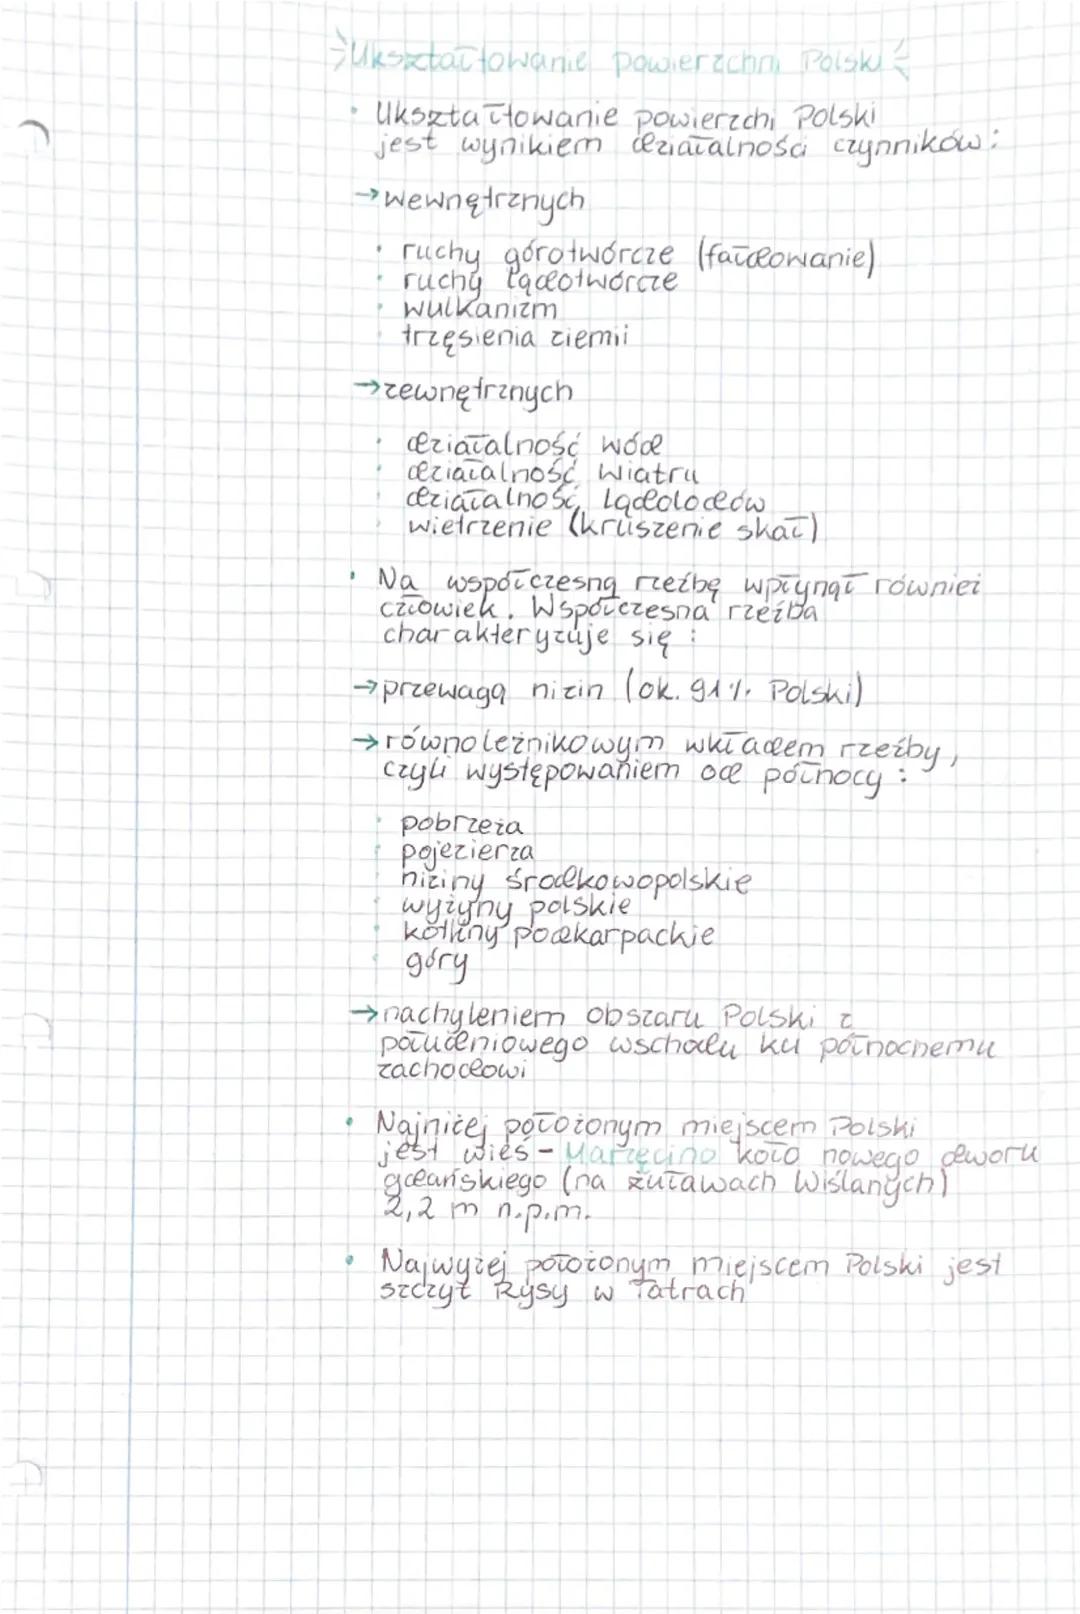 Ukształtowanie powierzchni Polski
• Ukształtowanie powierzchi Polski
jest wynikiem działalności czynników:
→ wewnętrznych
• ruchy górotwórcze (fałdowanie)
• ruchy lądotwórcze
• wulkanizm
• trzęsienia ziemii
→ zewnętrznych
• działalność wód
• działalność wiatru
• działalność lądolodów
• wietrzenie (kruszenie skał)
• Na współczesną rzeźbę wpłynął również
człowiek. Współczesna rzeźba
charakteryzuje się:
→ przewagą nizin (ok. 91% Polski)
→ równoleżnikowym wkładem rzeźby,
czyli występowaniem od północy:
• pobrzeża
• pojezierza
• niziny środkowopolskie
• wyżyny polskie
• kotliny podkarpackie
• góry
→ nachyleniem obszaru Polski z
południowego wschodu ku północnemu
zachodowi
• Najniżej położonym miejscem Polski
jest wieś - Marzęcino koło nowego dworu
gdeańskiego (na żuławach Wiślanych)
2,2 m n.p.m.
• Najwyżej położonym miejscem Polski jest
szczyt Rysy w Tatrach